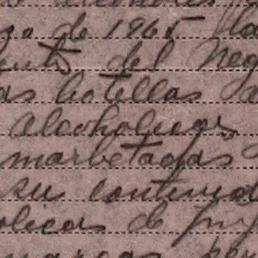 de 1965
del Neg
as botellas
alcoholicas
marbetadas
su contenid
olicas de